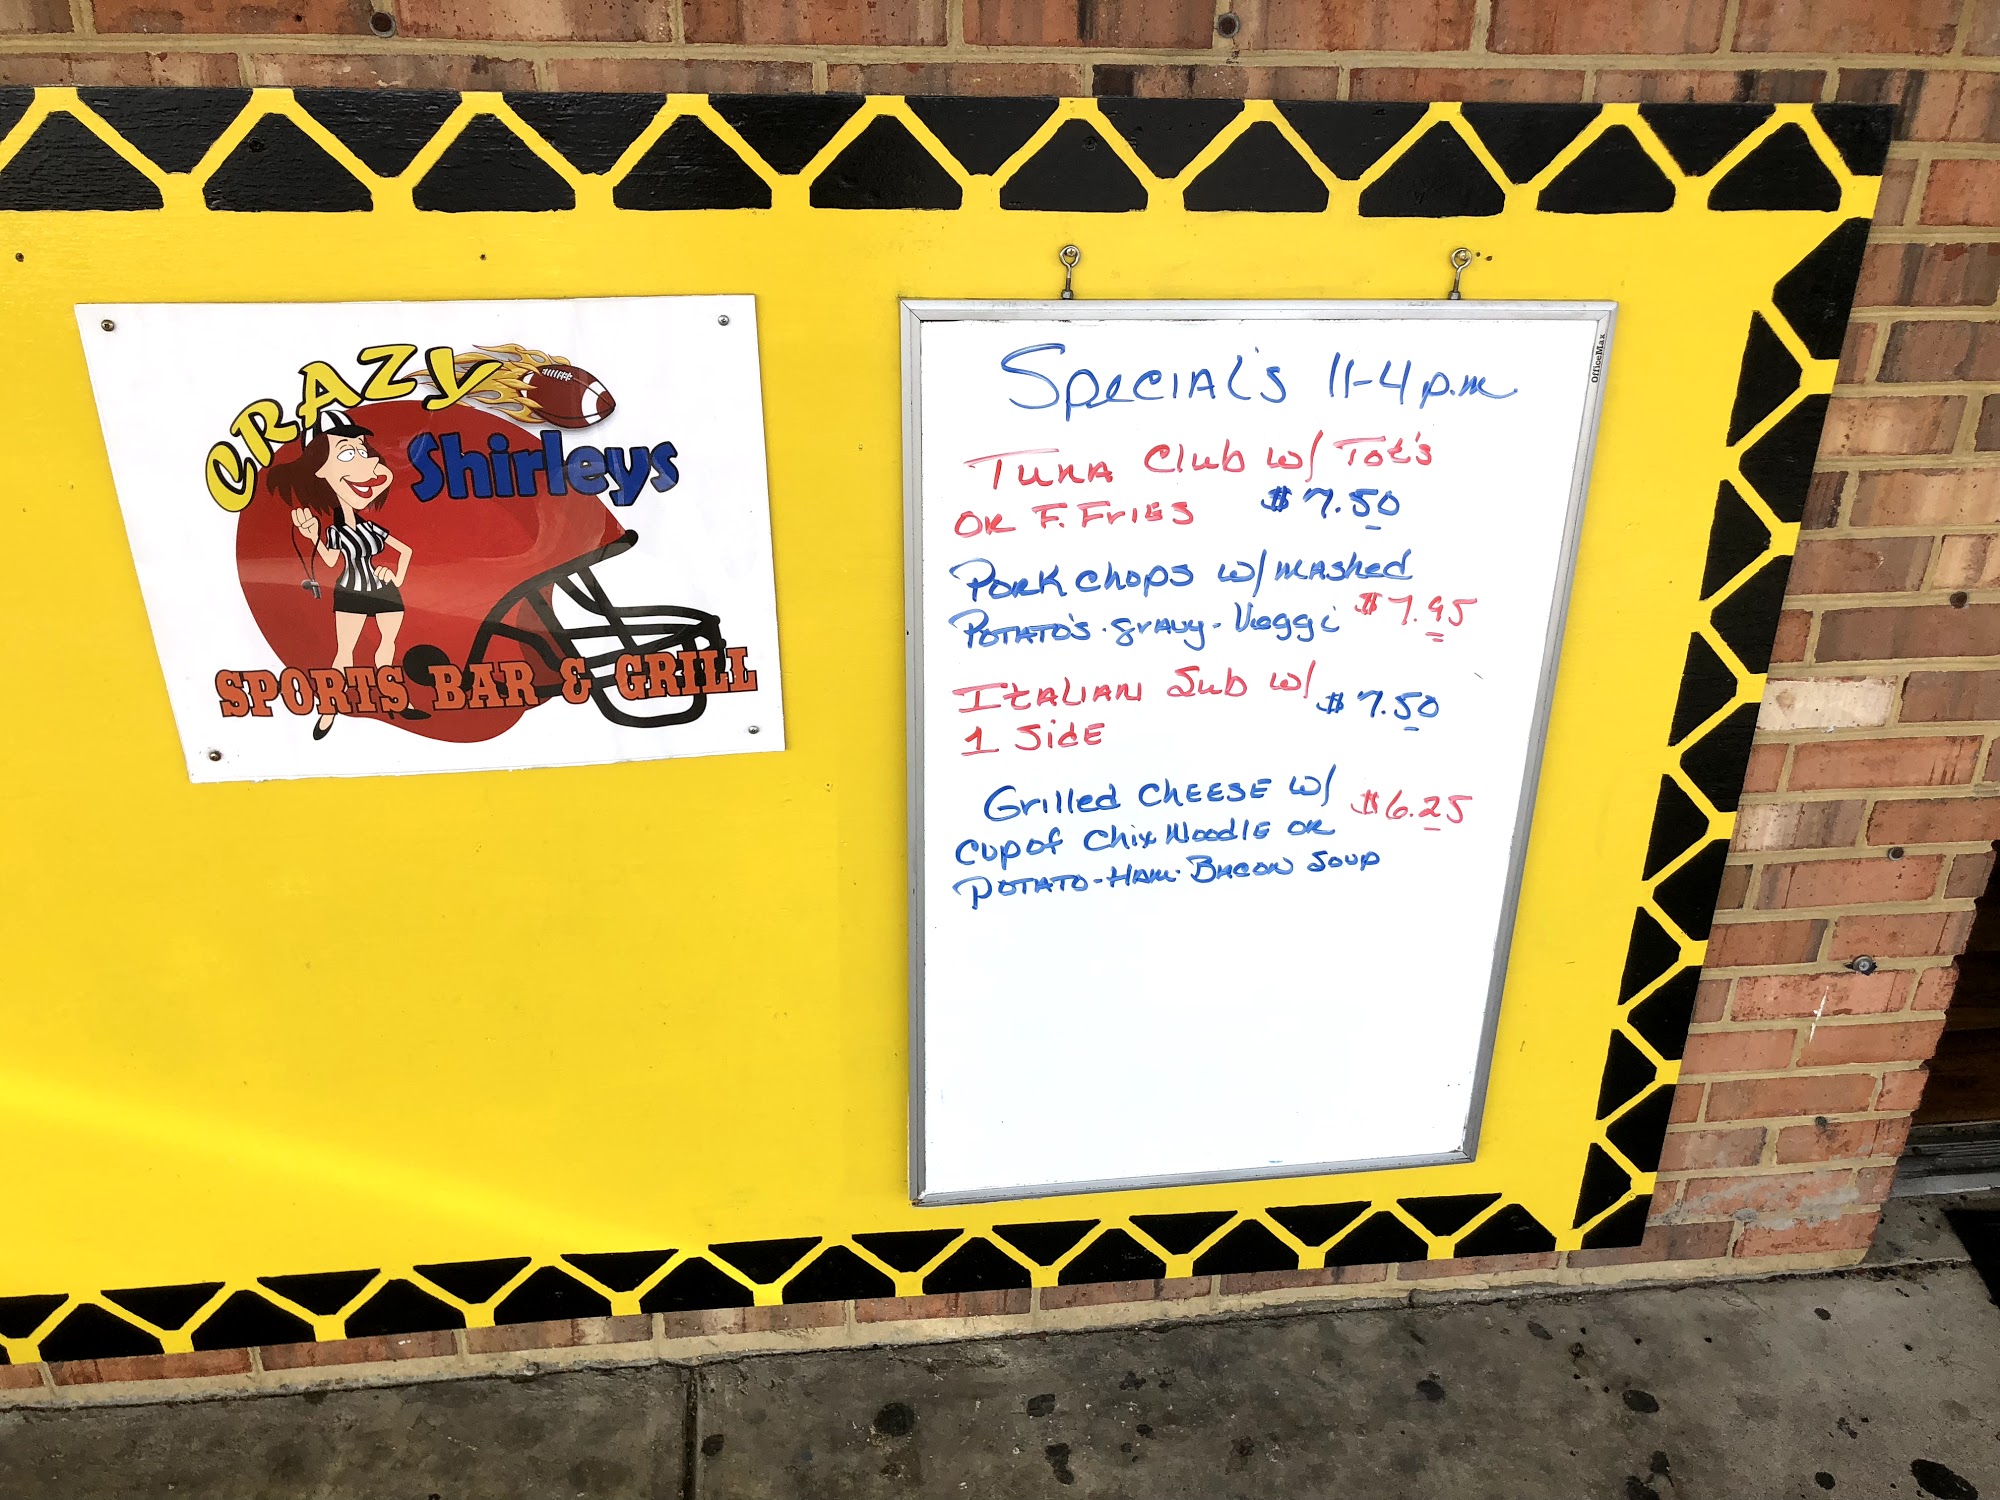 CRAZY
Shirleys
SPORTS BAR & GRILL
OfficeMax
Special's 11-4 p.m
Tuna Club w/ Tot's
or F. Fries $7.50
Pork chops w/ mashed
Potato's - gravy - Veggi $7.95
Italian Sub w/ $7.50
1 Side
Grilled Cheese w/ $6.25
cup of Chix Noodle or
Potato-Ham-Bacon Soup